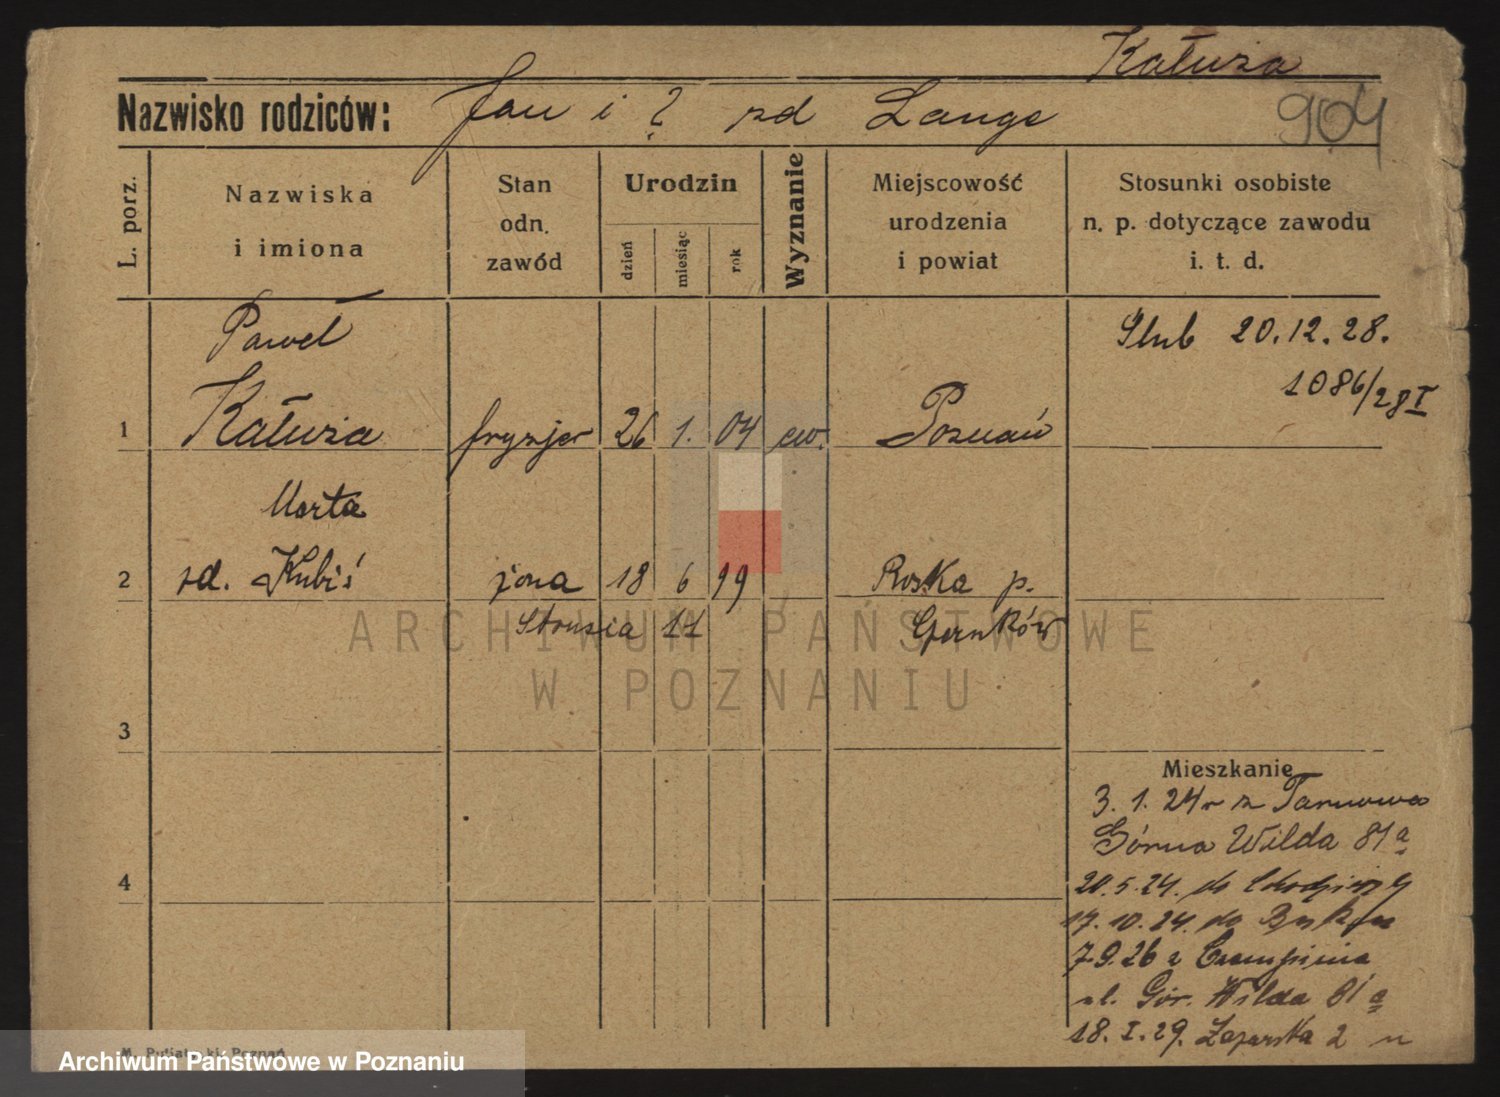 Kałuża
Nazwisko rodziców: Jan i ? zd Lange
904
L. porz.
Nazwiska
i imiona
Stan
odn.
zawód
Urodzin
dzień
miesiąc
rok
Wyznanie
Miejscowość
urodzenia
i powiat
Stosunki osobiste
n. p. dotyczące zawodu
i. t. d.
Paweł
Ślub 20.12.28.
1086/28 I
1 Kałuża fryzjer 26 1. 04 ew. Poznań
Marta
2 zd. Kubiś żona 18 6 99 Roska p.
Strusia 11 Czarnków
ARCHIWUM PAŃSTWOWE
W POZNANIU
3
Mieszkanie
3. 1. 24 r z Tarnowa
Górna Wilda 81 a
4
20.5.24. do Chodzieży
17.10.24. do
7.9.26 z Czempinia
ul. Gór. Wilda 81 a
18. I. 29. 2
Poznań
Archiwum Państwowe w Poznaniu